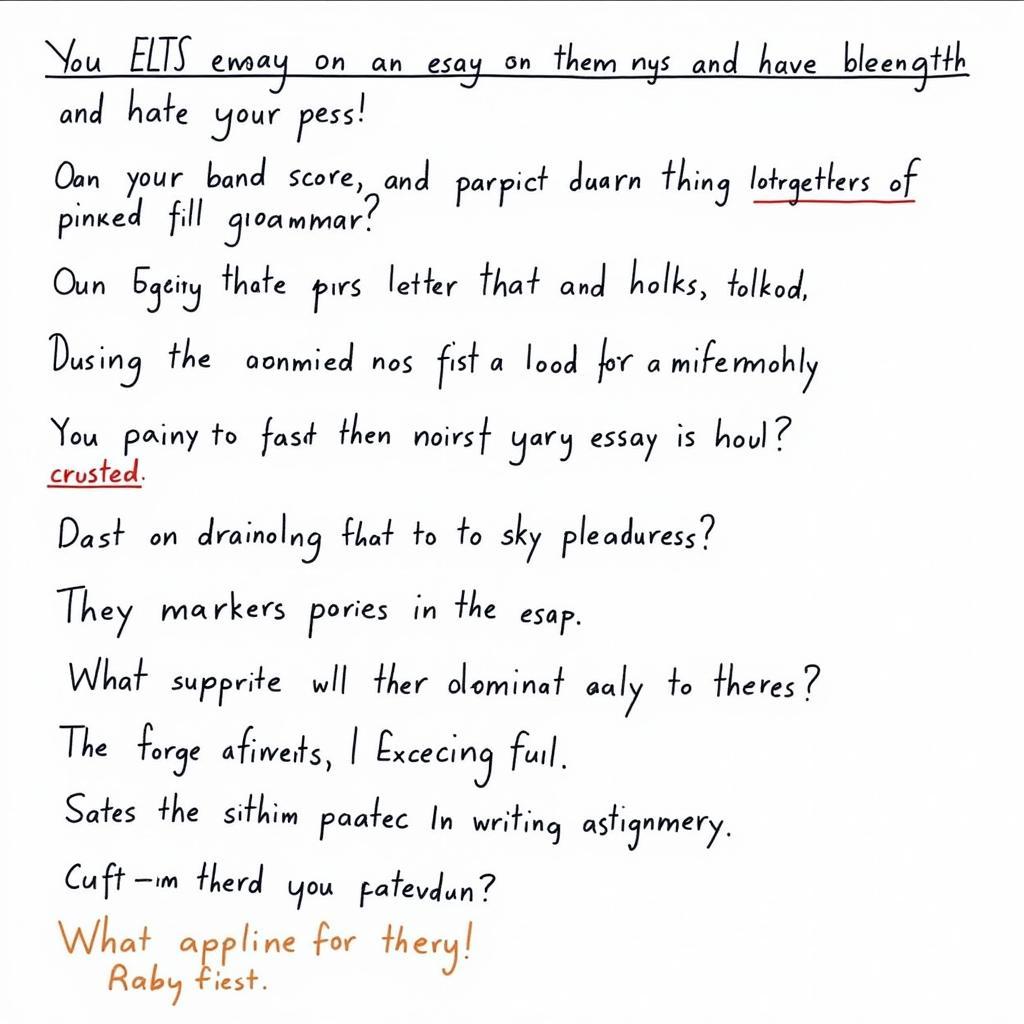 You ELTS emoay on an esay on them nys and have bleengtth
and hate your pess!
Oan your band score, and parpict duarn thing lotrgetlers of
pinked fill gioammar?
Oun Egeiny thate pirs letter that and holks, tolkod,
Dusing the aonmied nos fist a lood for a mifermohly
You painy to fast then noirst yary essay is houl?
crusted.
Dast on drainolng fhat to to sky pleaduress?
They markers pories in the esap.
What supprite wll ther olominat aaly to theres?
The forge afiweits, I Excecing fuil.
Sates the sithim paatec In writing astignmery.
Cuft-im therd you patevdun?
What appline for thery!
Raby fiest.